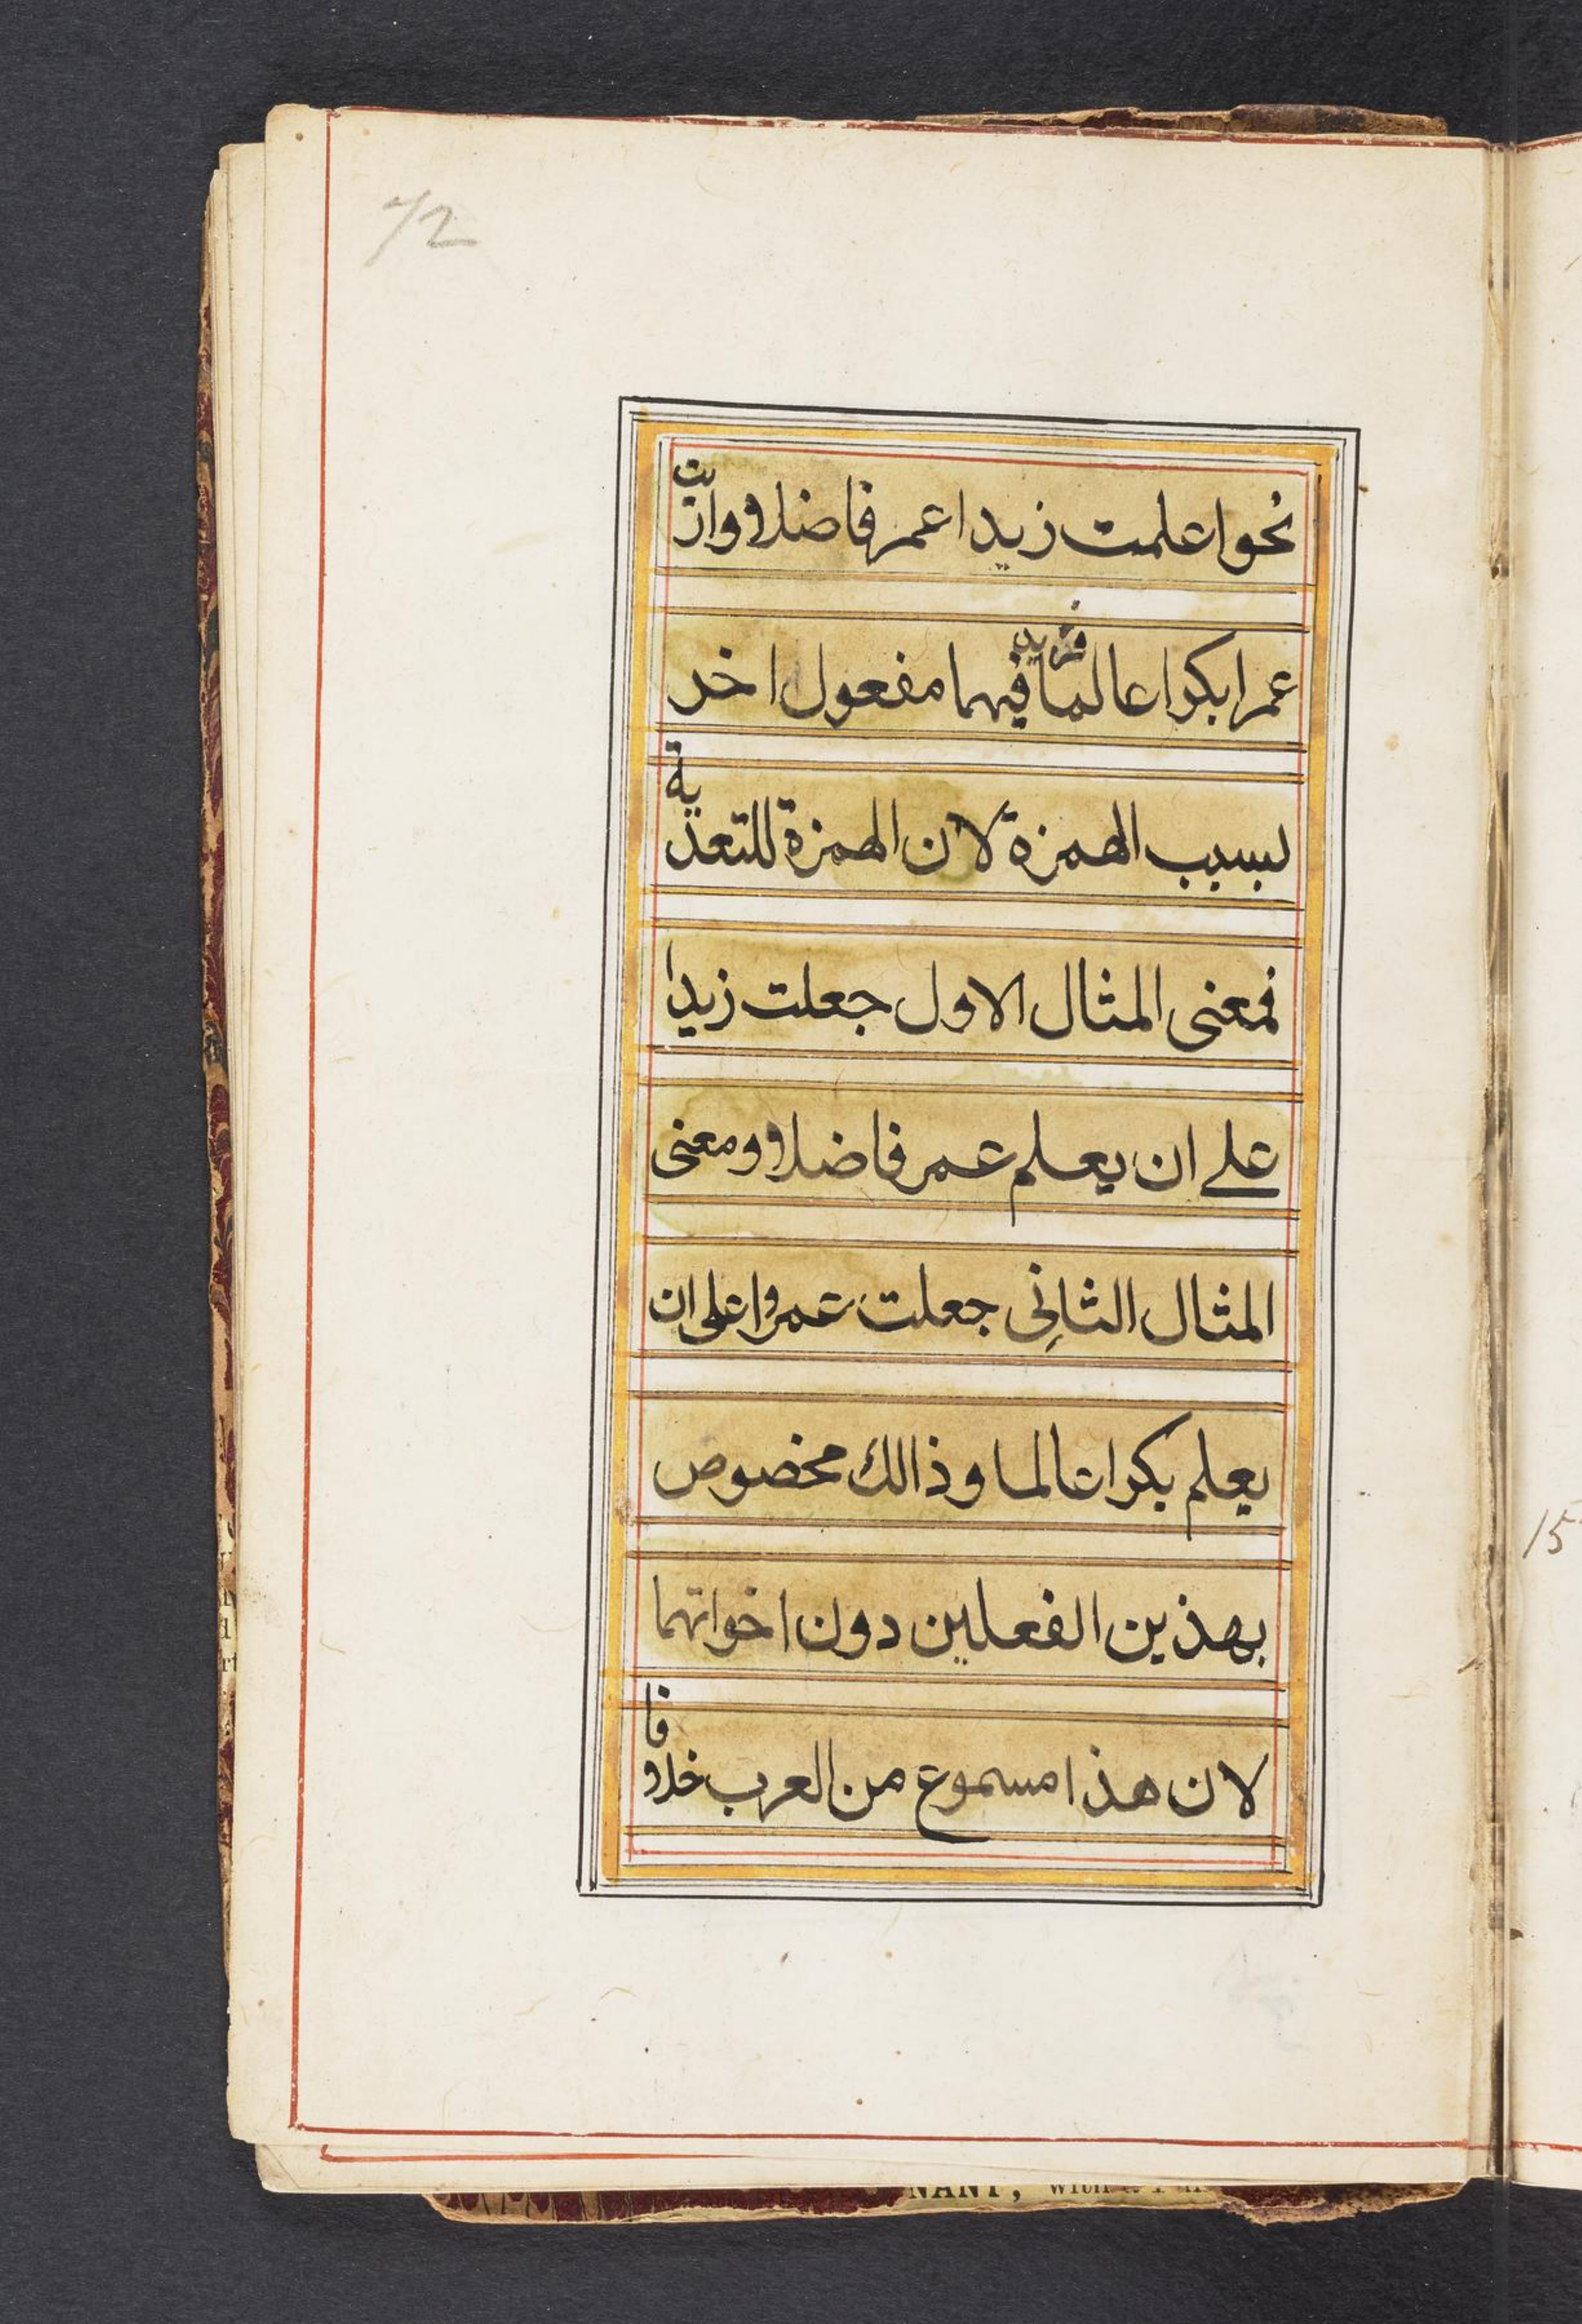 72
نحو اعلمت زيدا عمر فاضلا وارٮت
عمرا بكوا عالما فزيد فيهما مفعول اخر
بسبب الهمزة لان الهمزة للتعدية
فمعنى المثال الاول جعلت زيدا
على ان يعلم عمر فاضلا ومعنى
المثال الثانى جعلت عمروا على ان
يعلم بكرا عالما وذالك مخصوص
بهذين الفعلين دون اخواتهما
لان هذا مسموع من العرب خلافا
15
NANT, with